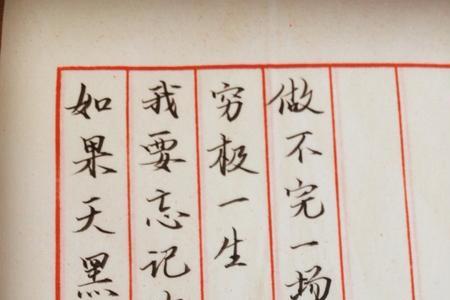 如果天黑
我要忘记
穷极一生
做不完一场